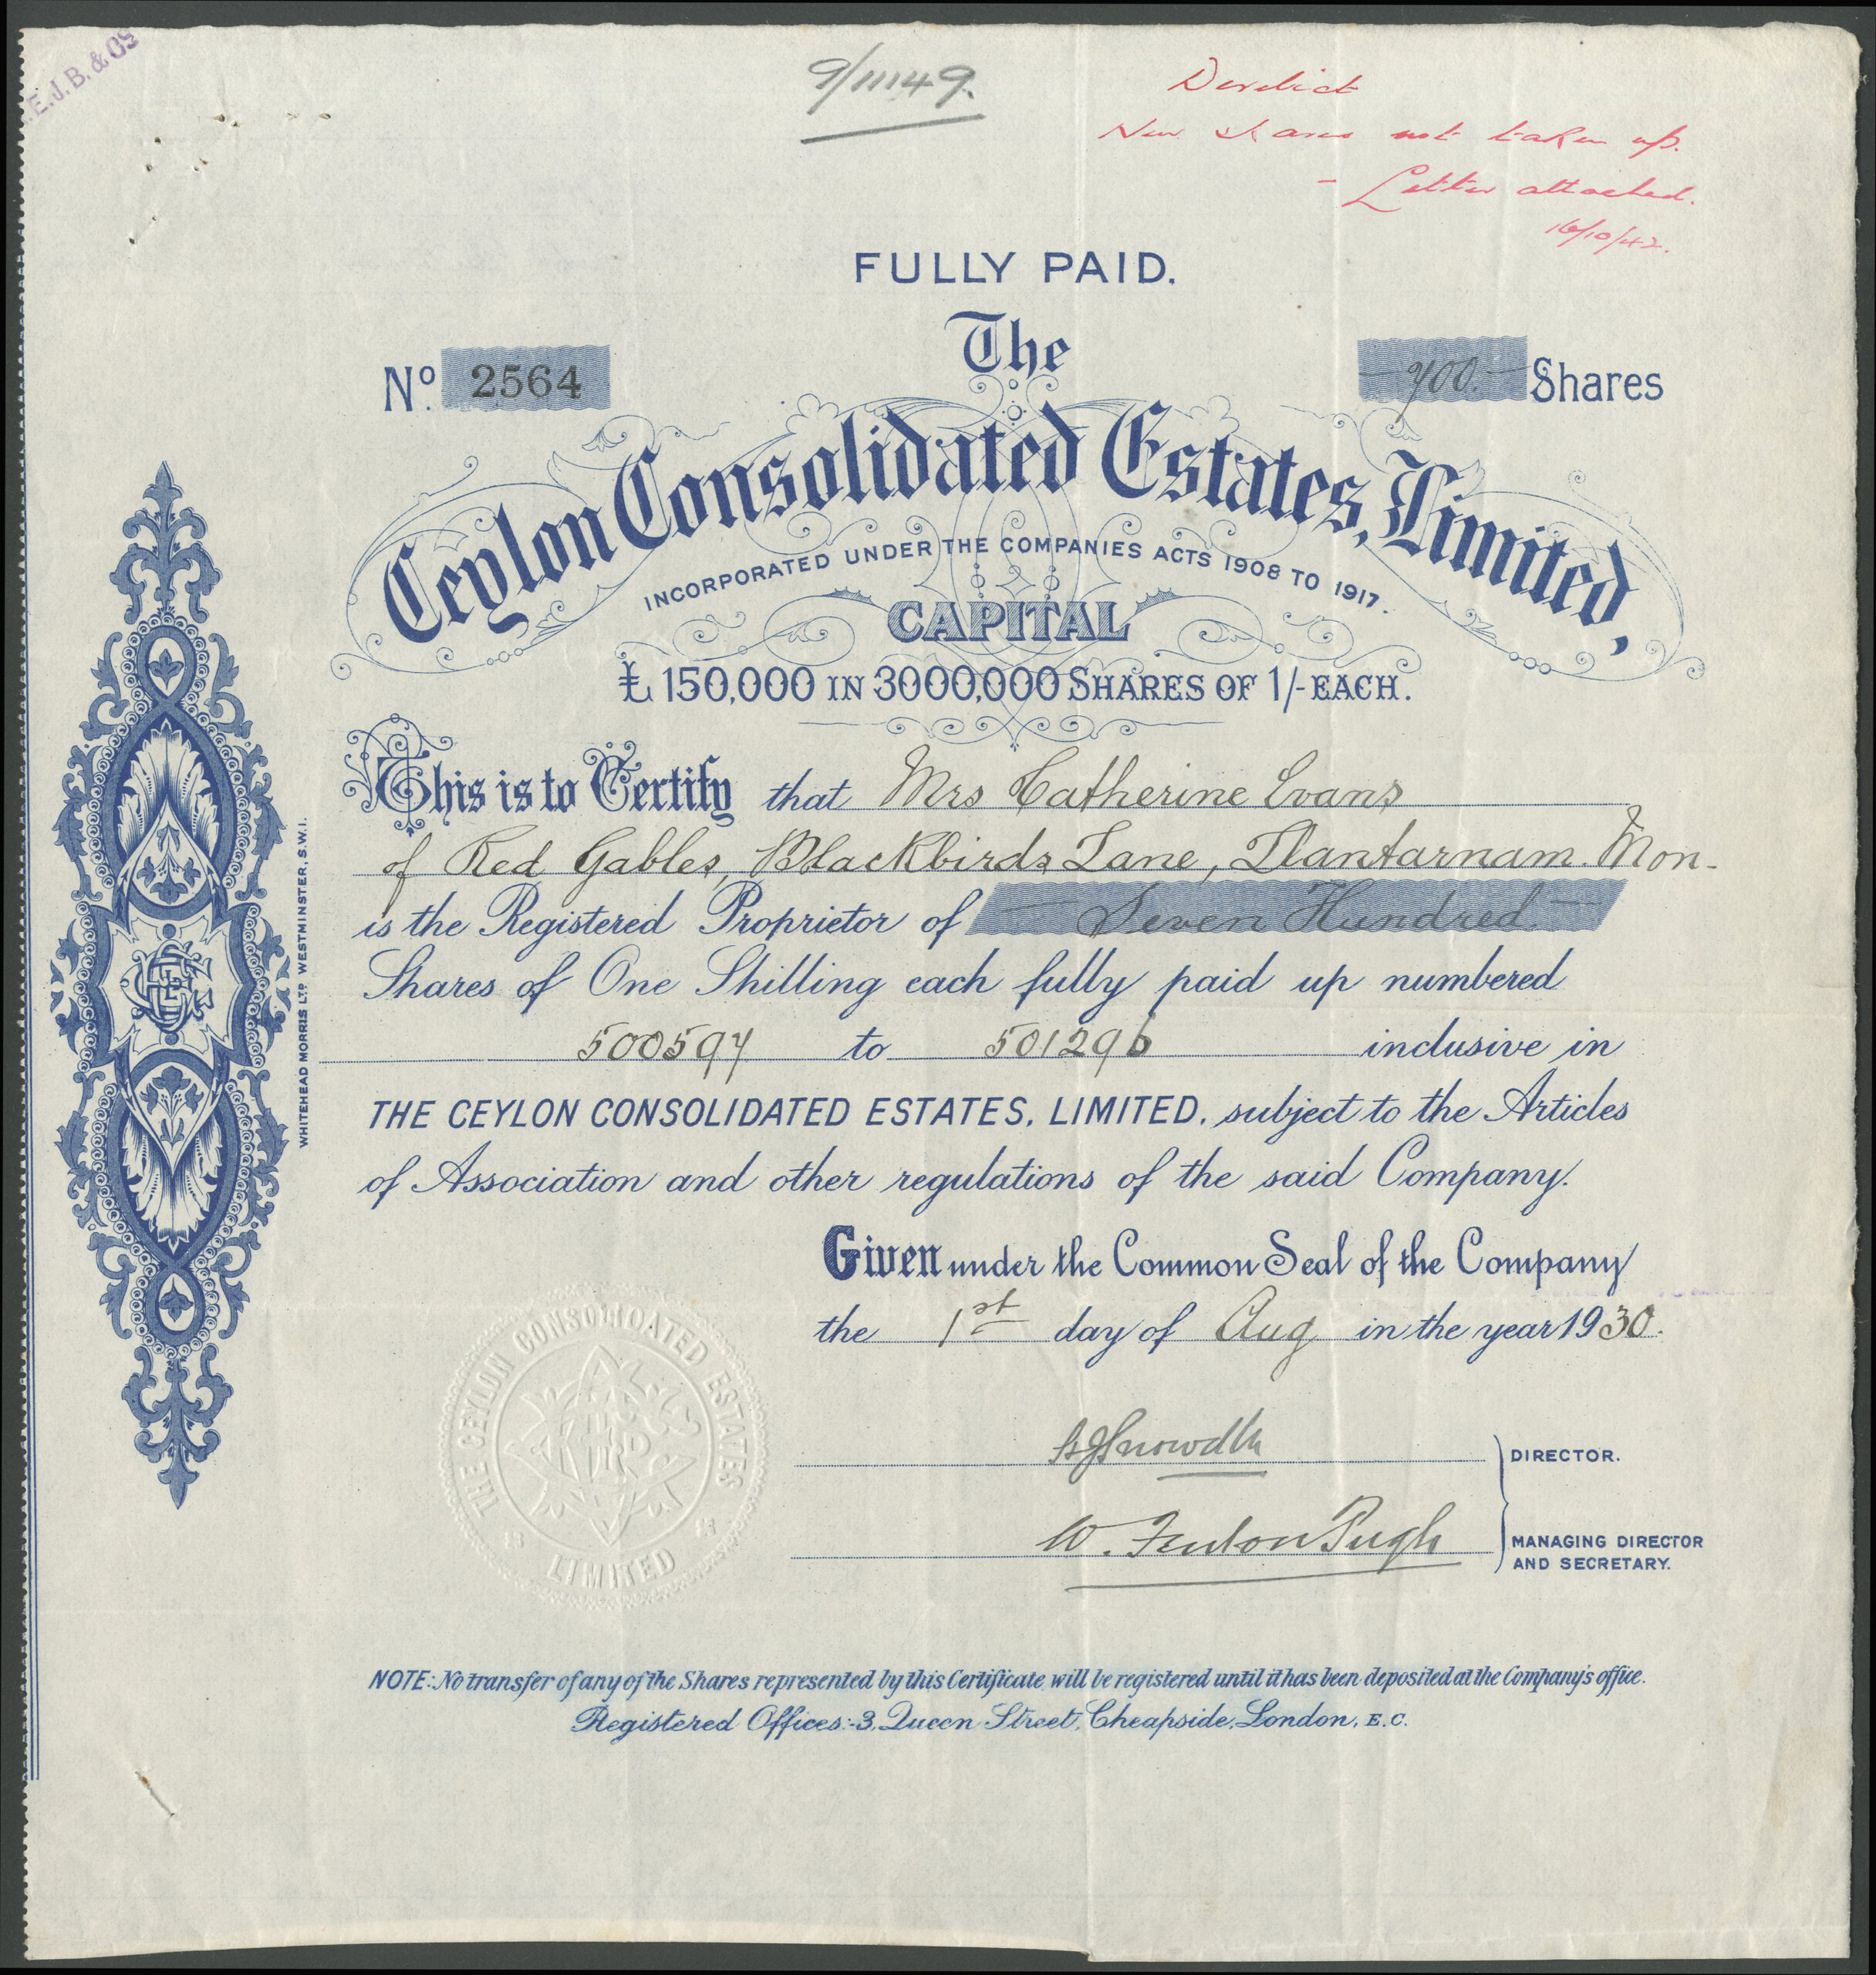 E.J.B. & Co
9/11/49.
Derelict
New shares not taken up.
- Letter attached.
16/10/42.
FULLY PAID.
The
No. 2564
700. Shares
Ceylon Consolidated Estates, Limited,
INCORPORATED UNDER THE COMPANIES ACTS 1908 TO 1917.
CAPITAL
£150,000 IN 3000,000 SHARES OF 1/- EACH.
This is to Certify that Mrs Catherine Evans
of Red Gables, Blackbirds Lane, Llantarnam. Mon-
is the Registered Proprietor of Seven Hundred
Shares of One Shilling each fully paid up numbered
500597 to 501296 inclusive in
THE CEYLON CONSOLIDATED ESTATES, LIMITED, subject to the Articles
of Association and other regulations of the said Company.
Given under the Common Seal of the Company
the 1st day of Aug in the year 1930.
DIRECTOR.
W. Fenton Pugh
MANAGING DIRECTOR
AND SECRETARY.
THE CEYLON CONSOLIDATED ESTATES
LIMITED
NOTE:- No transfer of any of the Shares represented by this Certificate will be registered until it has been deposited at the Company's office.
Registered Offices:- 3, Queen Street, Cheapside, London, E.C.
WHITEHEAD MORRIS LTD WESTMINSTER, S.W.1.